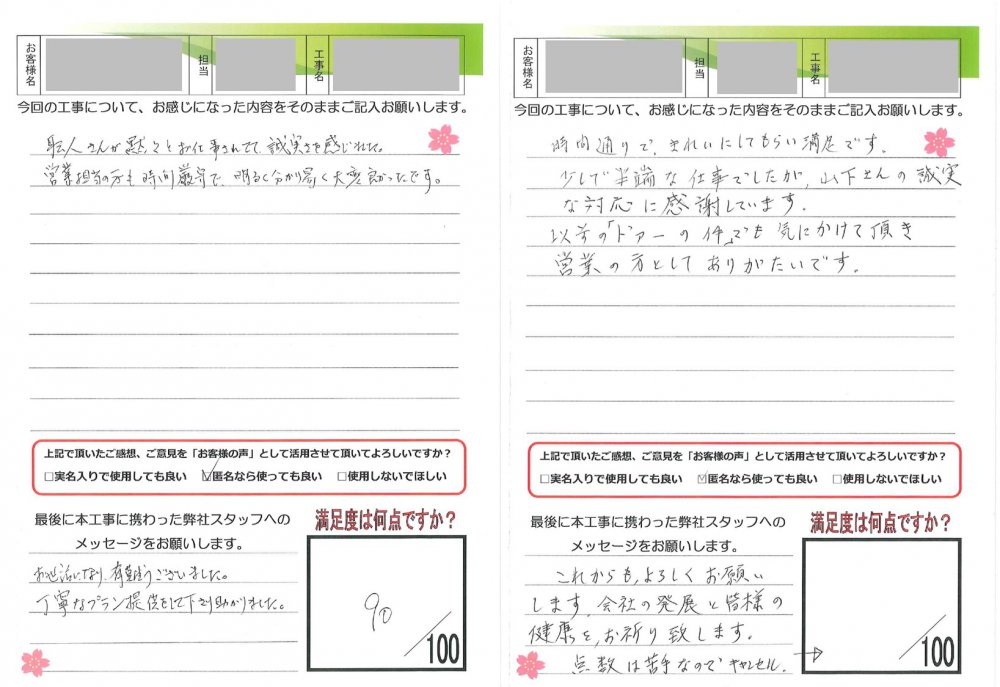 お客様名
担当
工事名
今回の工事について、お感じになった内容をそのままご記入お願いします。
職人さんが黙々とお仕事されてて、誠実さを感じれた。
営業担当の方も時間厳守で、明るく分かり易く大変良かったです。
上記で頂いたご感想、ご意見を「お客様の声」として活用させて頂いてよろしいですか？
□実名入りで使用しても良い ☑匿名なら使っても良い □使用しないでほしい
最後に本工事に携わった弊社スタッフへの
メッセージをお願いします。
お世話になり、有難うございました。
丁寧なプラン提供をして下さり助かりました。
満足度は何点ですか？
90
/100
お客様名
担当
工事名
今回の工事について、お感じになった内容をそのままご記入お願いします。
時間通りで、きれいにしてもらい満足です。
少しで半端な仕事でしたが、山下さんの誠実
な対応に感謝しています。
以前の「ドアーの件」でも気にかけて頂き
営業の方としてありがたいです。
上記で頂いたご感想、ご意見を「お客様の声」として活用させて頂いてよろしいですか？
□実名入りで使用しても良い ☑匿名なら使っても良い □使用しないでほしい
最後に本工事に携わった弊社スタッフへの
メッセージをお願いします。
これからも、よろしくお願い
します。会社の発展と皆様の
健康を、お祈り致します。
点数は苦手なのでキャンセル。→
満足度は何点ですか？
/100